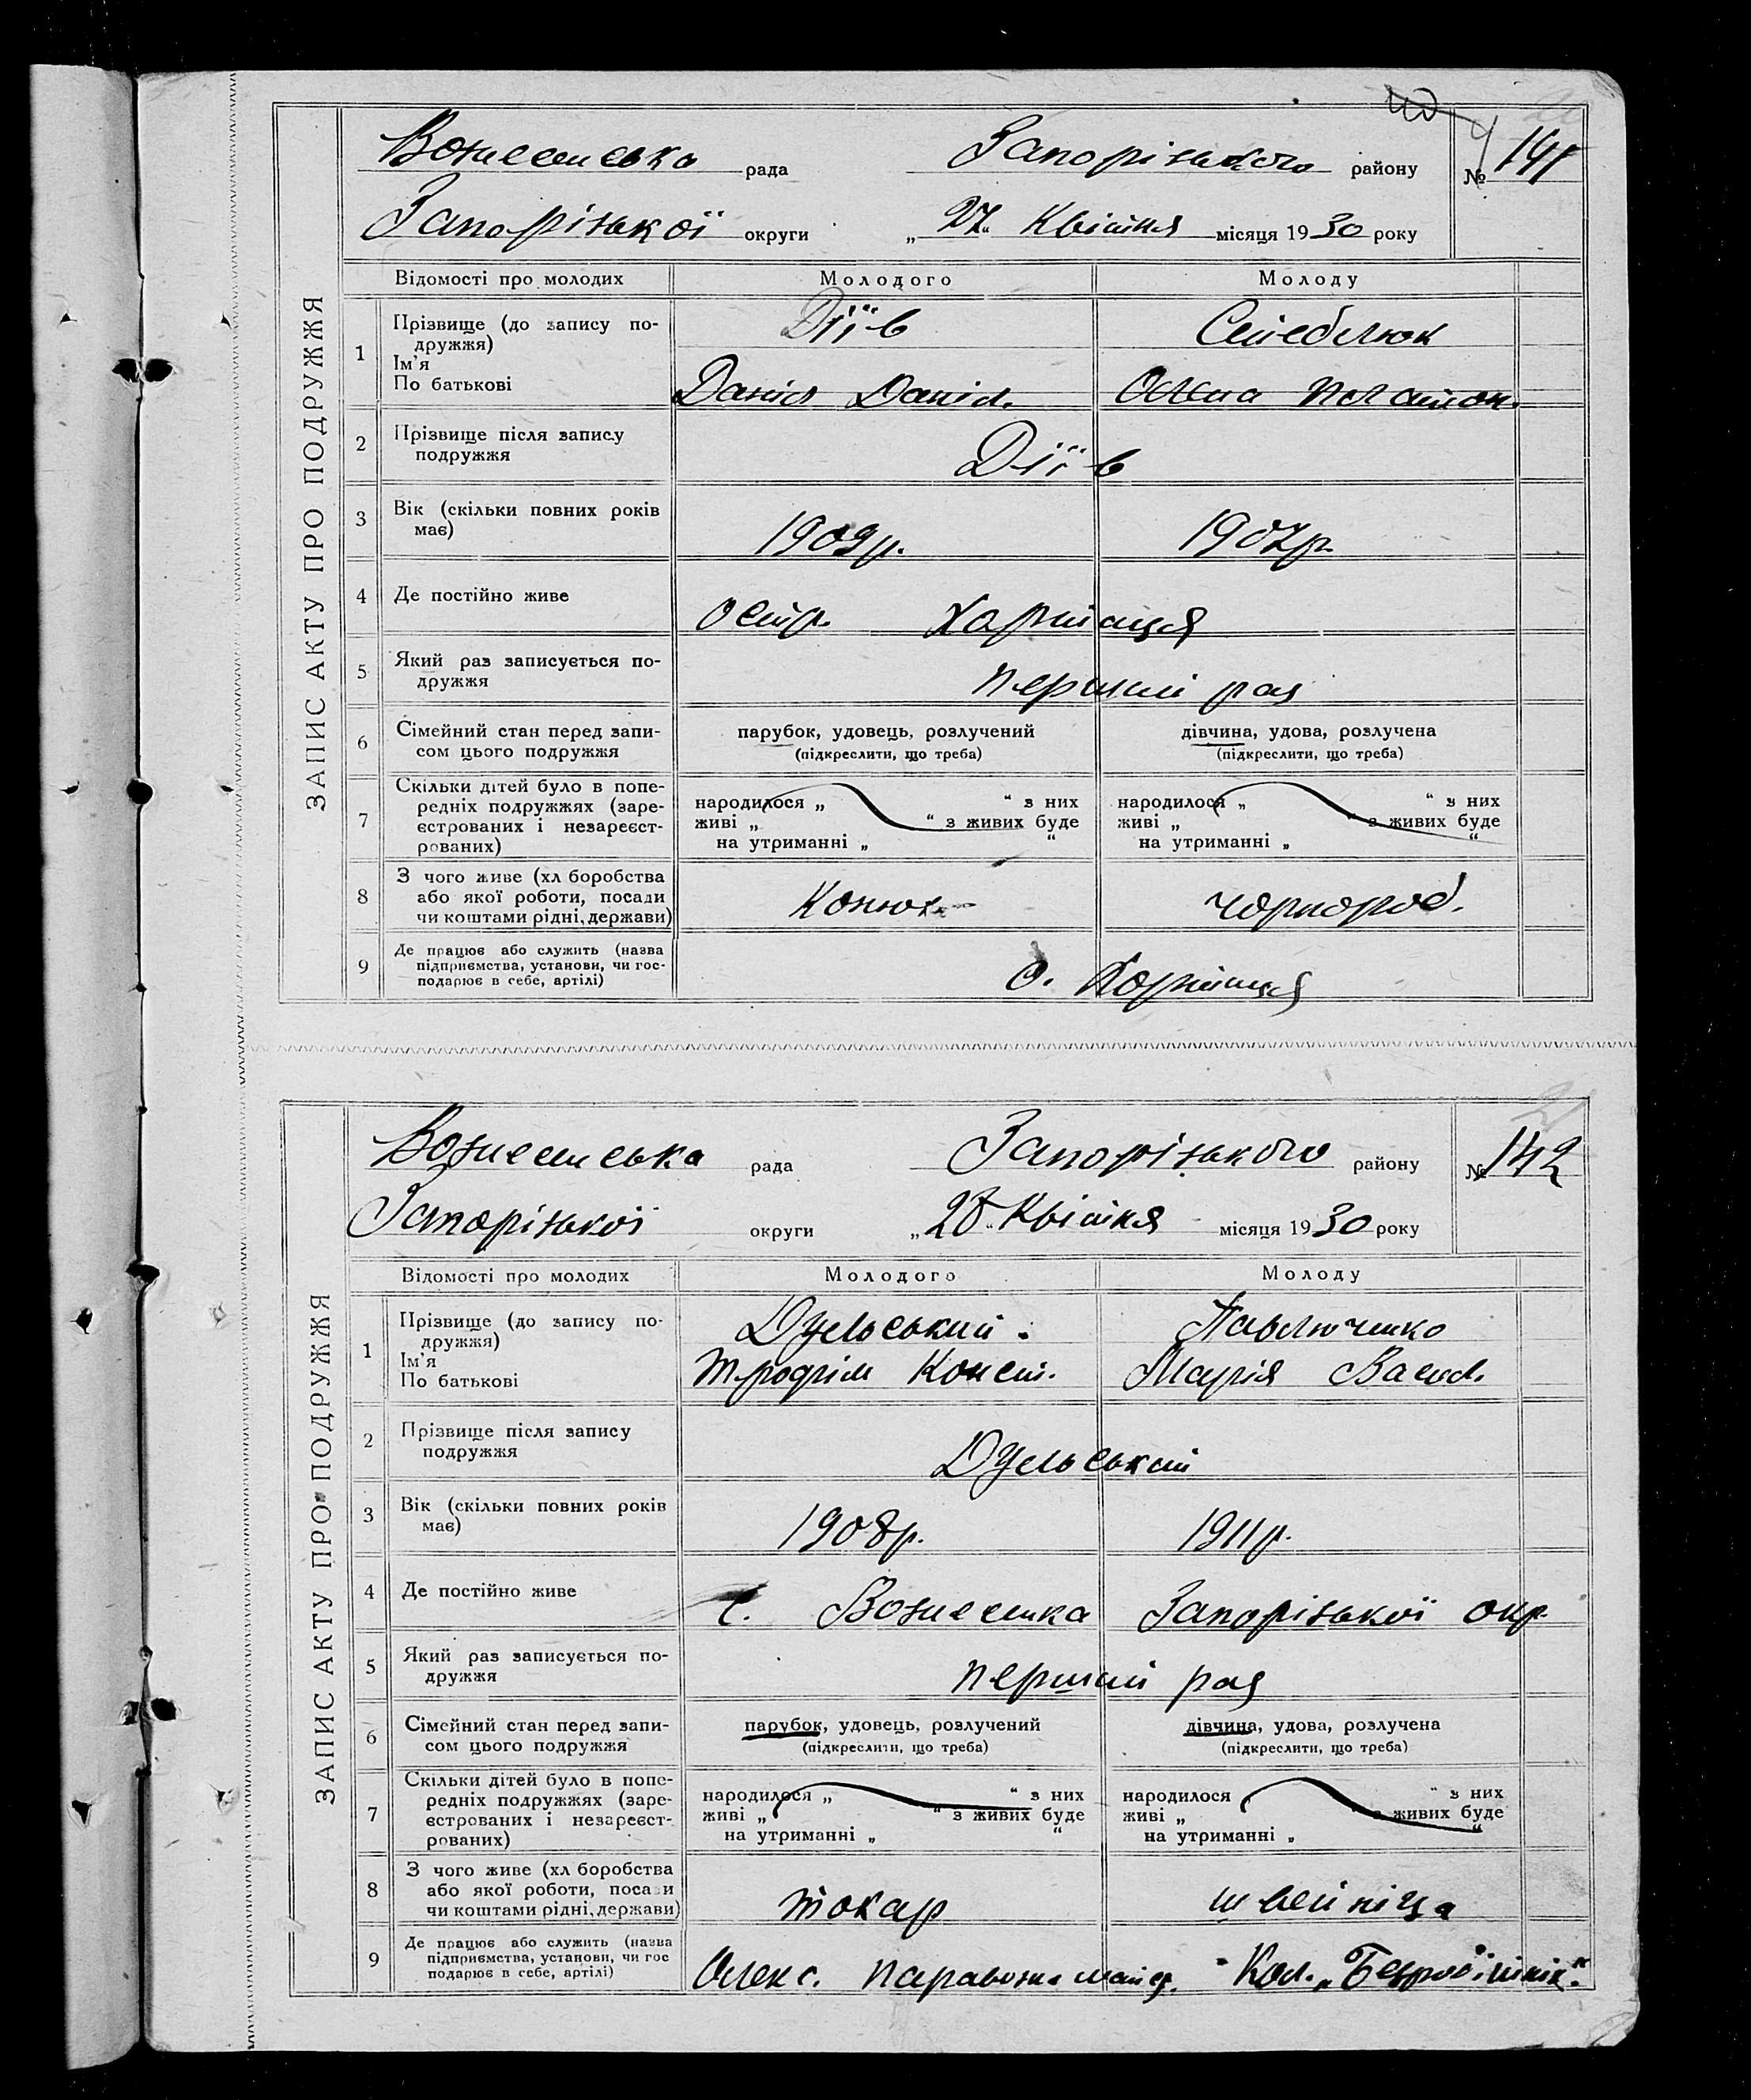 Вознесенська рада Запорізького району № 141
Запорізької округи „27“ Квітня місяця 1930 року
ЗАПИС АКТУ ПРО ПОДРУЖЖЯ
Відомості про молодих Молодого Молоду
1 Прізвище (до запису по-
дружжя)
Ім'я
По батькові
Діїв Стеблюк
Даніл Даніл. Олена Платон.
2 Прізвище після запису
подружжя
Діїв
3 Вік (скільки повних років
має)
1909р. 1907р.
4 Де постійно живе
Остр. Хортиця
5 Який раз записується по-
дружжя
перший раз
6 Сімейний стан перед запи-
сом цього подружжя
парубок, удовець, розлучений дівчина, удова, розлучена
(підкреслити, що треба) (підкреслити, що треба)
7 Скільки дітей було в попе-
редніх подружжях (заре-
єстрованих і незареєст-
рованих)
народилося „ “ з них народилося „ “ з них
живі „ “ з живих буде живі „ “ з живих буде
на утриманні „ “ на утриманні „ “
8 З чого живе (хл боробства
або якої роботи, посади
чи коштами рідні, держави)
Конюх чорнороб.
9 Де працює або служить (назва
підприємства, установи, чи гос-
подарює в себе, артілі)
О. Хортиця
Вознесенська рада Запорізького району № 142
Запорізької округи „28“ Квітня місяця 1930 року
ЗАПИС АКТУ ПРО ПОДРУЖЖЯ
Відомості про молодих Молодого Молоду
1 Прізвище (до запису по-
дружжя)
Ім'я
По батькові
Дульський. Павлюченко
Трофім Конст. Марія Васил.
2 Прізвище після запису
подружжя
Дульський
3 Вік (скільки повних років
має)
1908р. 1911р.
4 Де постійно живе
с. Вознесенка Запорізької окр.
5 Який раз записується по-
дружжя
перший раз
6 Сімейний стан перед запи-
сом цього подружжя
парубок, удовець, розлучений дівчина, удова, розлучена
(підкреслити, що треба) (підкреслити, що треба)
7 Скільки дітей було в попе-
редніх подружжях (заре-
єстрованих і незареєст-
рованих)
народилося „ “ з них народилося “ з них
живі „ “ з живих буде живі „ “ з живих буде
на утриманні „ “ на утриманні „ “
8 З чого живе (хл боробства
або якої роботи, посади
чи коштами рідні, держави)
токар швейніца
9 Де працює або служить (назва
підприємства, установи, чи гос
подарює в себе, артілі)
Олекс. паравозна майст. Кол. „Безробітнік“